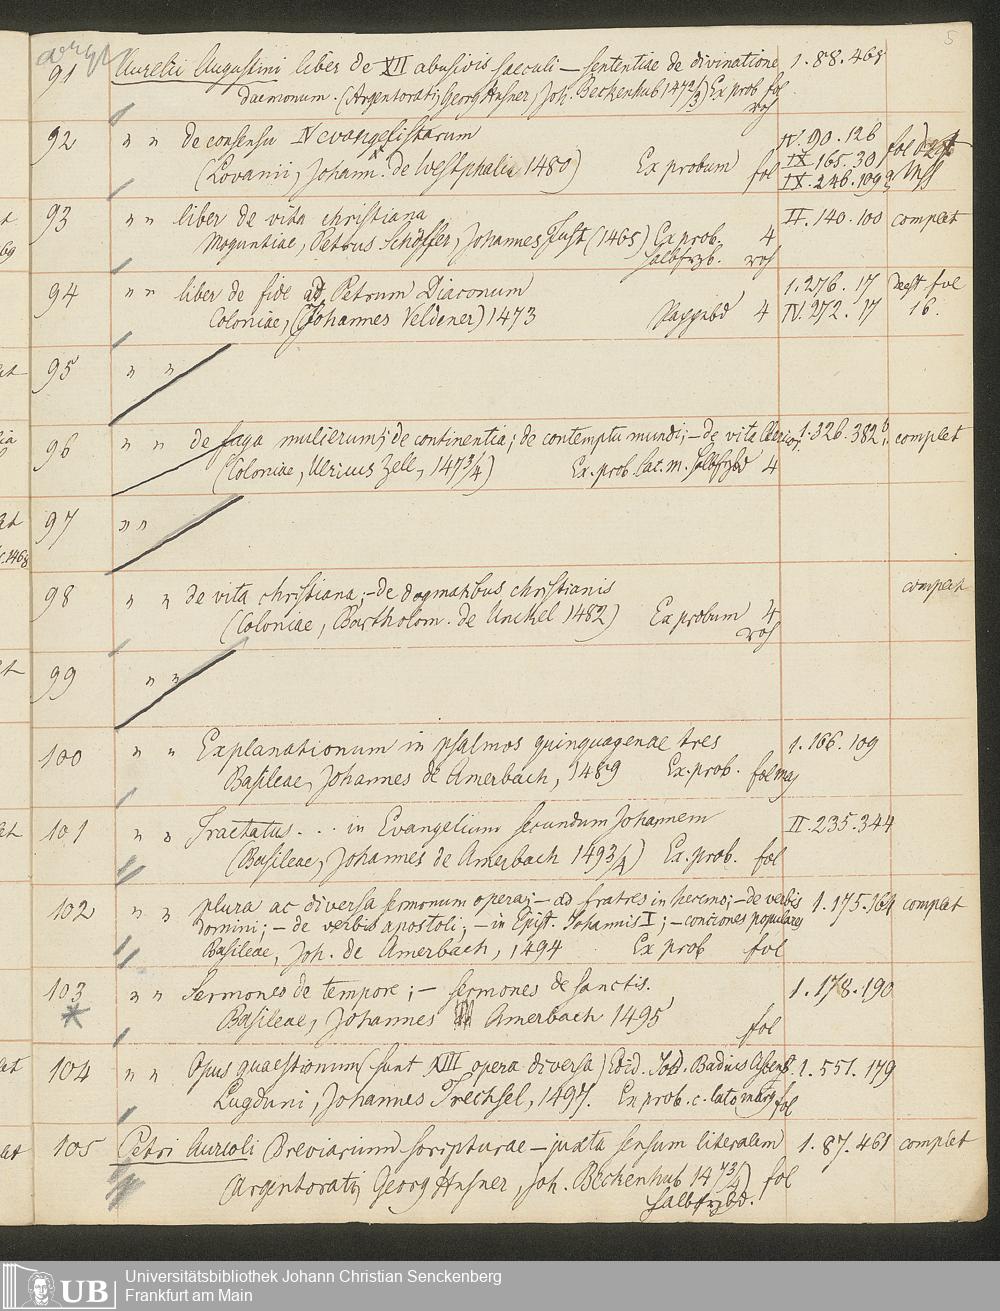 5
91 Aurelii Augustini liber de XII abusivis saeculi — sententiae de divinatione 1.88.465
daemonum. (Argentorati, Georg Husner, Joh. Beckenhub 1472/3) Ex prob fol
roh
92 " " de consensu IV evangelistarum IV. 90. 126
(Lovanii, Johann. de Westphalia 1480) Ex probum fol IX. 165. 30 fol
IX. 246. 109
93 " " liber de vita christiana II. 140. 100 complet
Moguntiae, Petrus Schöffer, Johannes Fust (1465) Ex prob. 4
halbfrzb. roh
94 " " liber de fide ad Petrum Diaconum 1. 276. 17 deest fol
Coloniae, (Johannes Veldener) 1473 Pappbd 4 IV. 272. 17 16.
95 " "
96 " " de fuga mulierum; de continentia; de contemptu mundi; — de vita 1. 326. 382 complet
(Coloniae, Ulricus Zell, 1473/4) Ex. prob. lat. m. halbfrzbd 4
97 " "
98 " " de vita christiana; — de dogmatibus christianis complet
(Coloniae, Bartholom. de Unckel 1482) Ex probum 4
roh
99 " "
100 " " Explanationum in psalmos quinquagenae tres 1. 106. 109
Basileae, Johannes de Amerbach, 1489 Ex. prob. fol maj
101 " " Tractatus . . . in Evangelium secundum Johannem II. 235. 344
(Basileae, Johannes de Amerbach 1493/4) Ex. prob. fol
102 " " plura ac diversa sermonum opera; — ad fratres in heremo; — de verbis 1. 175. 164 complet
Domini; — de verbis apostoli; — in Epist. Johannis I; — conciones populares
Basileae, Joh. de Amerbach, 1494 Ex prob fol
103 " " Sermones de tempore; — sermones de sanctis. 1. 178. 190
* Basileae, Johannes Amerbach 1495 fol
104 " " Opus quaestionum (sunt XIII opera diversa) Edid. Jod. Badius Ascens. 1. 551. 179
Lugduni, Johannes Trechsel, 1497. Ex prob. c. lato marg fol
105 Petri Aureoli Breviarium scripturae — juxta sensum literalem 1. 87. 461 complet
(Argentorati, Georg Husner, Joh. Beckenhub 1473/4) fol
halbfrzbd.
UB Universitätsbibliothek Johann Christian Senckenberg
Frankfurt am Main